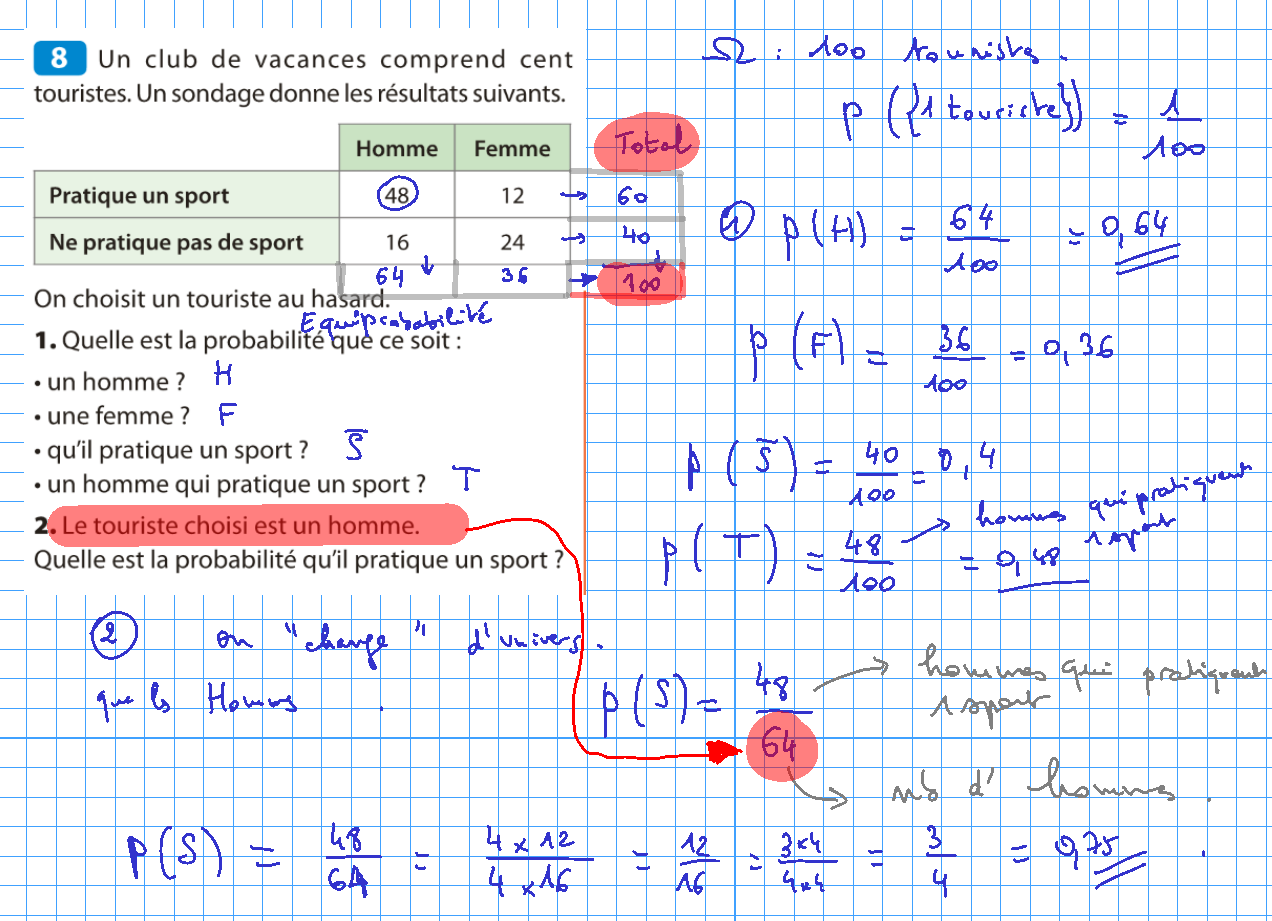 8 Un club de vacances comprend cent
touristes. Un sondage donne les résultats suivants.
Homme Femme Total
Pratique un sport 48 12 → 60
Ne pratique pas de sport 16 24 → 40
64 ↓ 36 → 100
On choisit un touriste au hasard.
Equiprobabilité
1. Quelle est la probabilité que ce soit :
• un homme ? H
• une femme ? F
• qu'il pratique un sport ? S̅
• un homme qui pratique un sport ? T
2. Le touriste choisi est un homme.
Quelle est la probabilité qu'il pratique un sport ?
Ω : 100 touristes.
p ({1 touriste}) = 1/100
1 p(H) = 64/100 = 0,64
p (F) = 36/100 = 0,36
p (S̅) = 40/100 = 0,4
p (T) = 48/100 = 0,48
→ hommes qui pratiquent
1 sport
2 on "change" d'univers.
que les Hommes .
p(S) = 48/64
→ hommes qui pratiquent
1 sport
→ nb d'hommes.
p(S) = 48/64 = 4 × 12/4 × 16 = 12/16 = 3×4/4×4 = 3/4 = 0,75 .